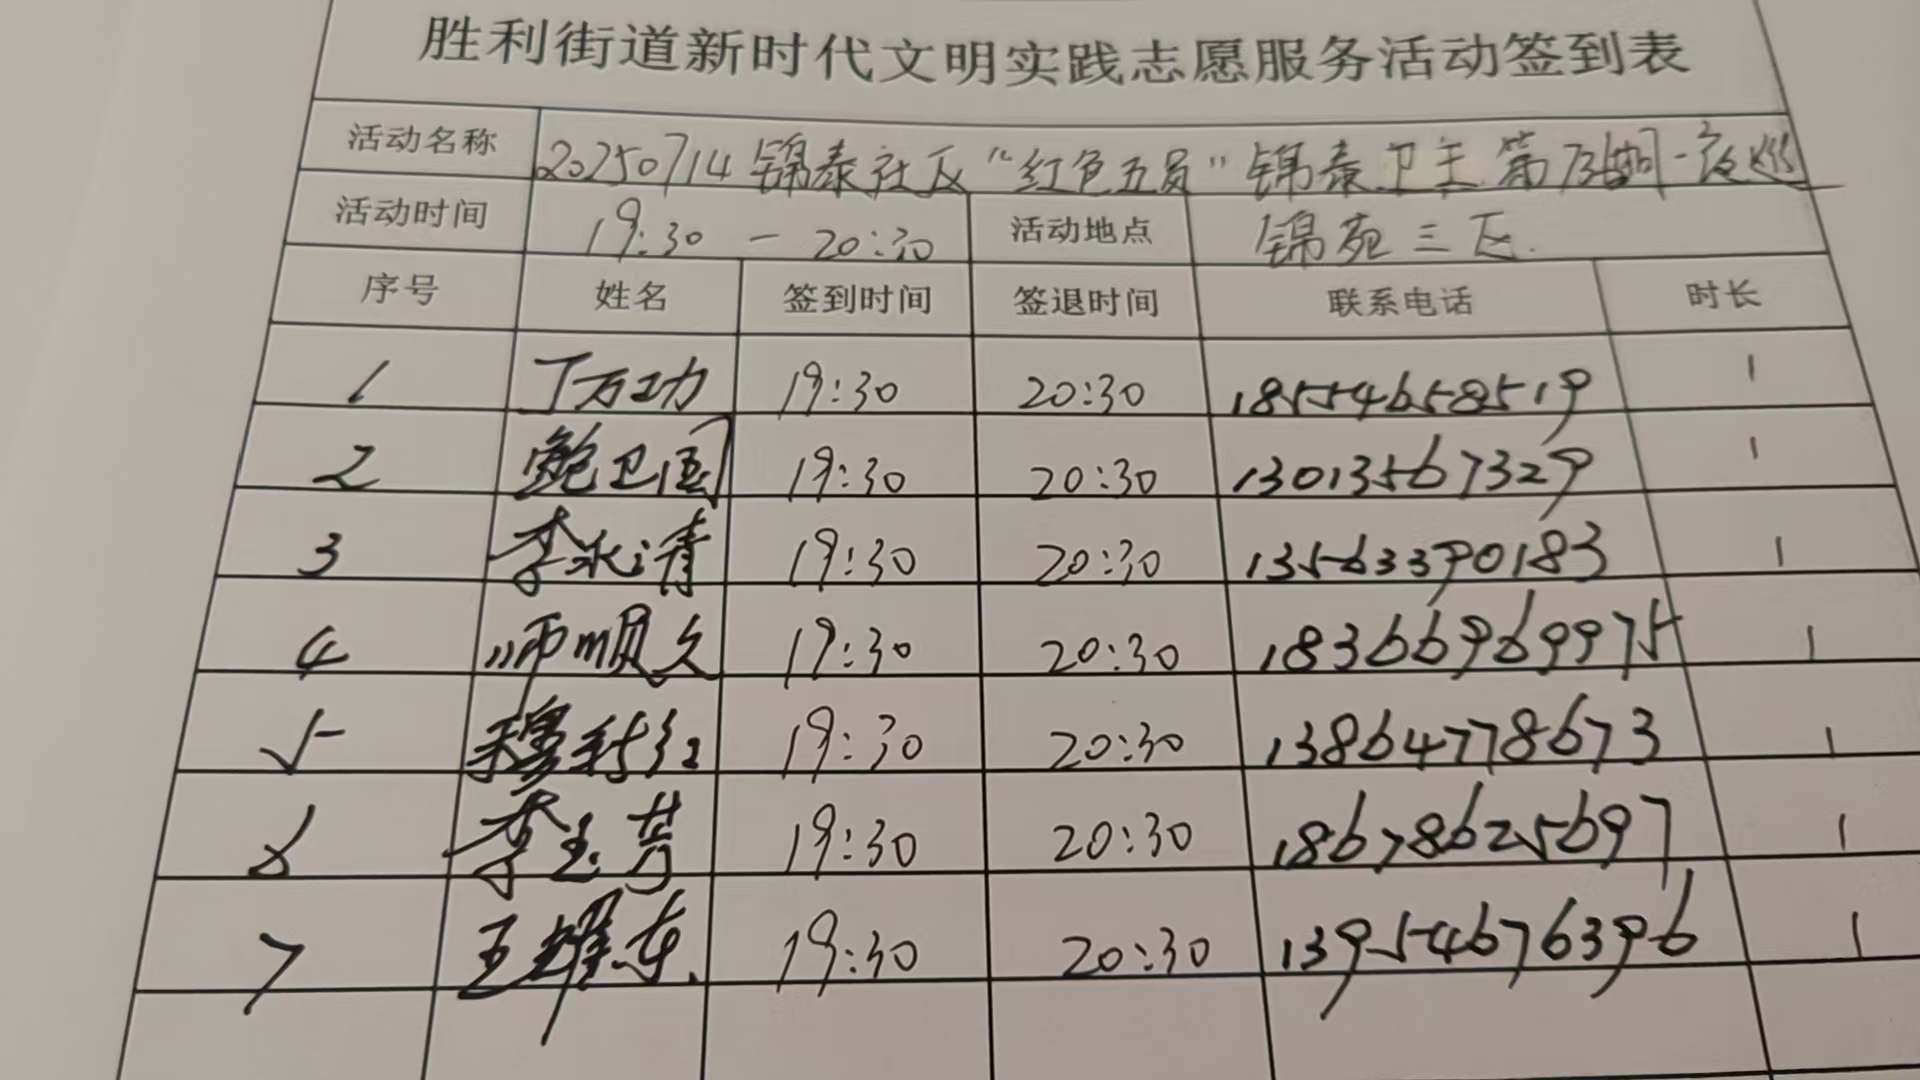 胜利街道新时代文明实践志愿服务活动签到表
活动名称 20250714锦泰社区“红色五员”锦泰卫士第73期-夜巡
活动时间 19:30-20:30 活动地点 锦苑三区.
序号 姓名 签到时间 签退时间 联系电话 时长
1 丁万功 19:30 20:30 18554658519 1
2 鲍卫国 19:30 20:30 13013567329 1
3 李永清 19:30 20:30 13563390183 1
4 师顺久 19:30 20:30 18366969975 1
5 穆秀红 19:30 20:30 13864778673 1
6 李玉芳 19:30 20:30 18678625697 1
7 王耀东 19:30 20:30 13954676396 1